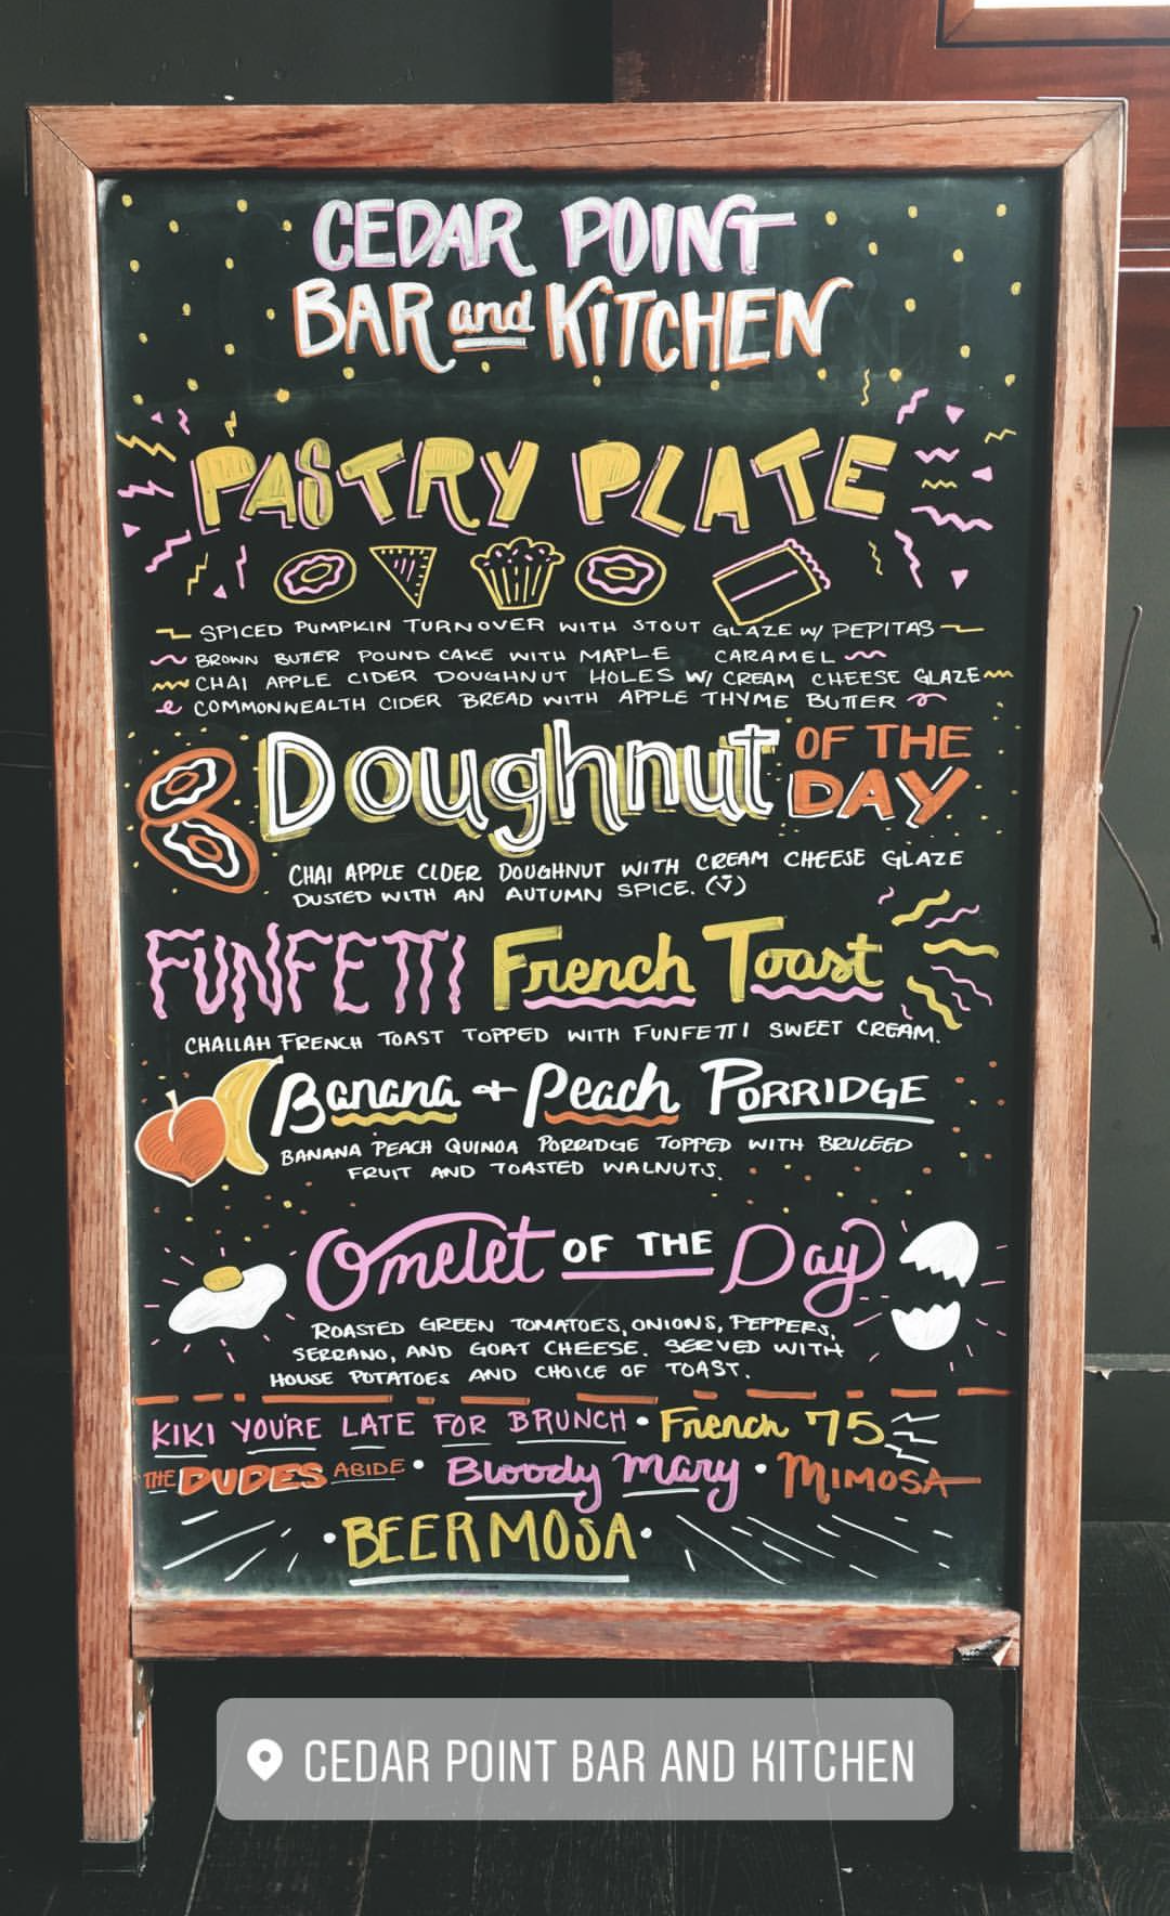 CEDAR POINT
BAR and KITCHEN
PASTRY PLATE
SPICED PUMPKIN TURNOVER WITH STOUT GLAZE W/ PEPITAS
BROWN BUTTER POUND CAKE WITH MAPLE CARAMEL
CHAI APPLE CIDER DOUGHNUT HOLES W/ CREAM CHEESE GLAZE
COMMONWEALTH CIDER BREAD WITH APPLE THYME BUTTER
Doughnut OF THE
DAY
CHAI APPLE CIDER DOUGHNUT WITH CREAM CHEESE GLAZE
DUSTED WITH AN AUTUMN SPICE. (V)
FUNFETTI French Toast
CHALLAH FRENCH TOAST TOPPED WITH FUNFETTI SWEET CREAM.
Banana + Peach PORRIDGE
BANANA PEACH QUINOA PORRIDGE TOPPED WITH BRULEED
FRUIT AND TOASTED WALNUTS.
Omelet OF THE Day
ROASTED GREEN TOMATOES, ONIONS, PEPPERS,
SERRANO, AND GOAT CHEESE. SERVED WITH
HOUSE POTATOES AND CHOICE OF TOAST.
KIKI YOU'RE LATE FOR BRUNCH • French 75
THE DUDES ABIDE • Bloody Mary • MIMOSA
• BEERMOSA •
CEDAR POINT BAR AND KITCHEN